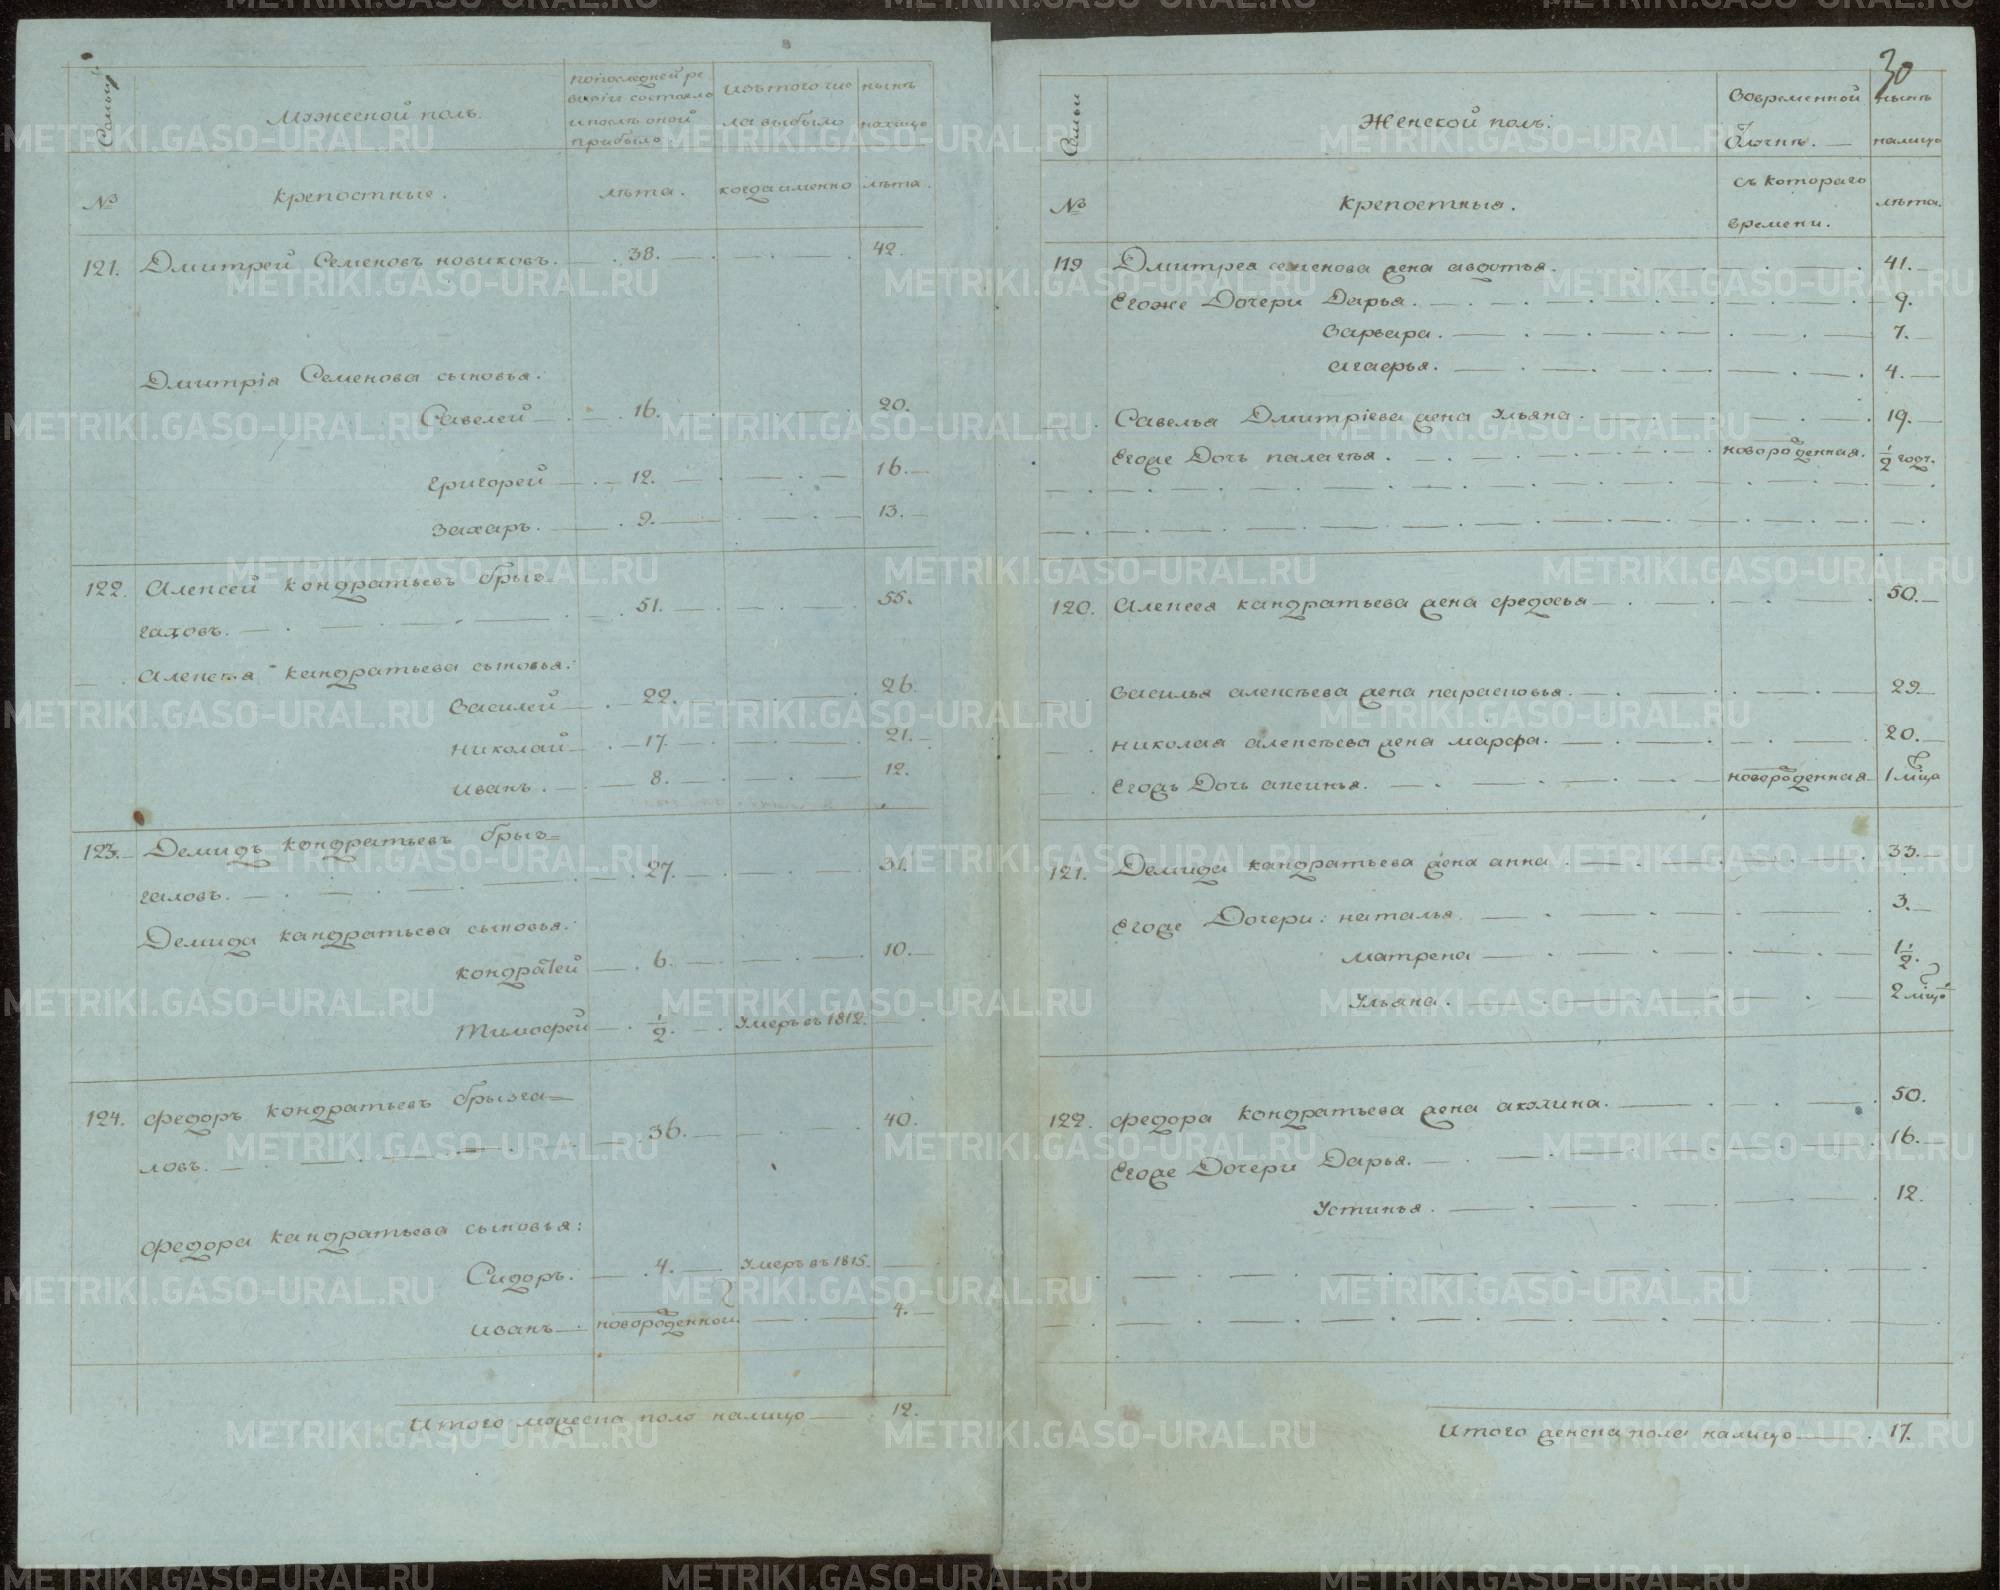 Семьи
Мужеской полъ.
По последней ре
визіи состояло
и послѣ оной
прибыло
Изъ того чис
ла выбыло
нынѣ
налицо
№
крепостные.
лѣта.
когда именно
лѣта.
121. Дмитрей Семеновъ новиковъ. 38. 42.
Дмитрія Семенова сыновья:
Савелей 16. 20.
григорей 12. 16.
Захаръ. 9. 13.
122. Алексей кондратьевъ брыз-
галовъ. 51. 55.
Алексѣя кандратьева сыновья:
Василей 22. 26.
николай 17. 21.
иванъ. 8. 12.
123. Демидъ кондратьевъ брыз=
галовъ. 27. 31.
Демида кандратьева сыновья:
кондратей 6. 10.
Тимофей 1/2. Умеръ въ 1812.
124. федоръ кондратьевъ брызга=
ловъ. 36. 40.
федора кандратьева сыновья:
Сидоръ. 4. Умеръ въ 1815.
иванъ новорожденной. 4.
Итого мужеска пола налицо 12.
30
Семьи
Женской полъ.
Вовременной
отлучкѣ.
нынѣ
налицо
№
крепостныя.
съ котораго
времени.
лѣта.
119 Дмитрея семенова жена авдотья. 41.
Егоже Дочери Дарья. 9.
Варвара. 7.
агафья. 4.
Савелья Дмитріева жена Ульяна. 19.
Егоже Дочь палагья. новорожденная. 1/2 годъ.
120. Алексея кандратьева жена федосья 50.
Василья алексѣева жена парасковья. 29.
николая алексѣева жена марфа. 20.
Егожъ Дочь аксинья. новорожденная 1 мѣсца
121. Демида кандратьева жена анна. 33.
Егоже Дочери: наталья 3.
матрена 1 1/2.
Ульяна. 2 мѣсцо
122. федора кондратьева жена акулина. 50.
Егоже Дочери Дарья. 16.
Устинья. 12.
Итого женска пола налицо 17.
METRIKI.GASO-URAL.RU